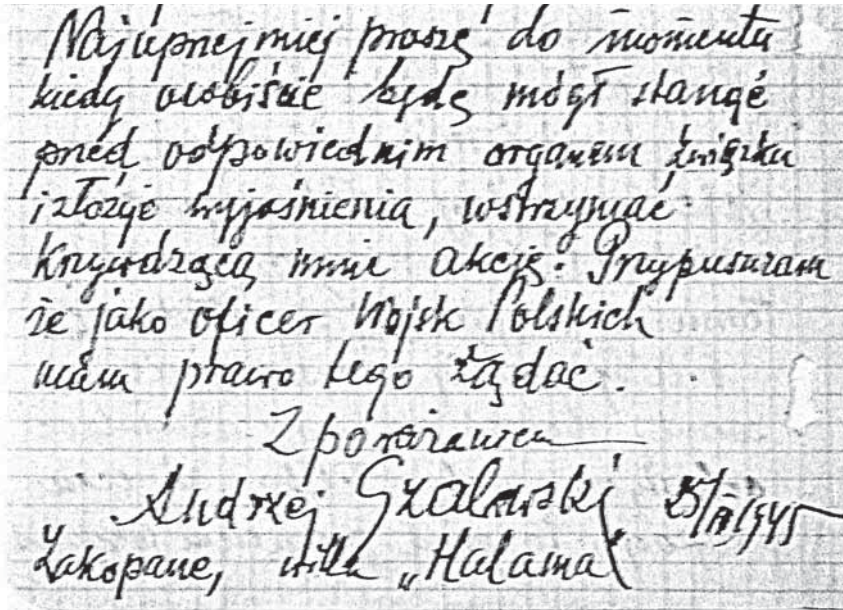 Najuprzejmiej proszę do momentu
kiedy osobiście będę mógł stanąć
przed odpowiednim organem związku
i złożyć wyjaśnienia, wstrzymać
krzywdzącą mnie akcję. Przypuszczam
że jako oficer Wojsk Polskich
mam prawo tego żądać.
Z poważaniem
Andrzej Szalawski
Zakopane, willa „Halama"